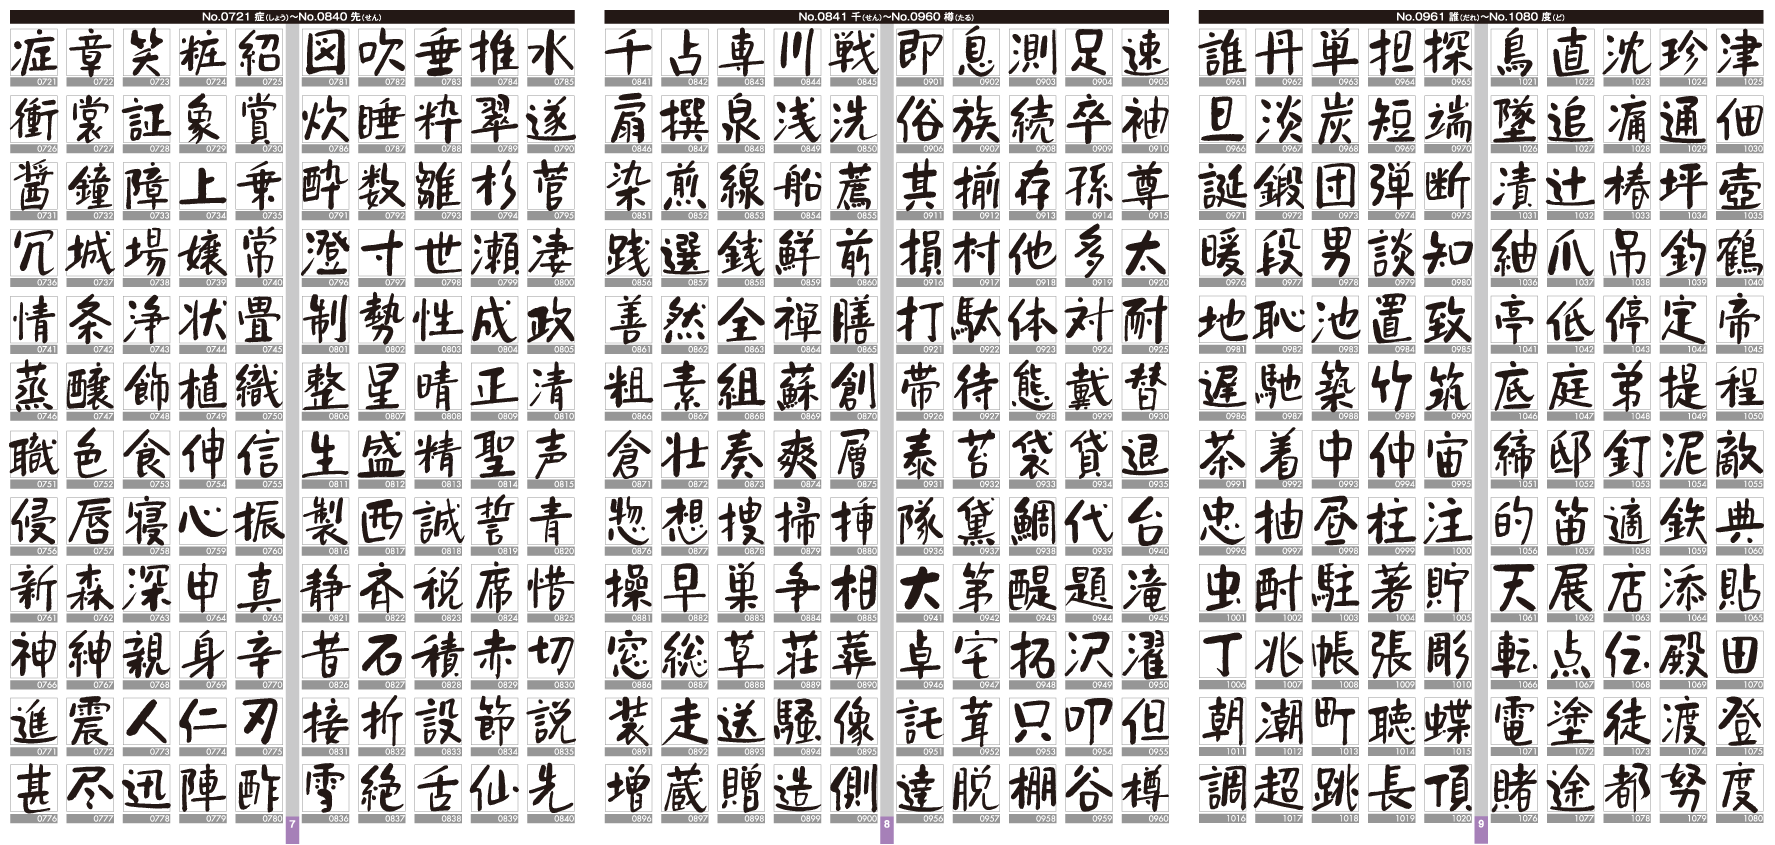 No.0721 症(しょう)〜No.0840 先(せん)
症 章 笑 粧 紹
0721 0722 0723 0724 0725
衝 裳 証 象 賞
0726 0727 0728 0729 0730
醤 鐘 障 上 乗
0731 0732 0733 0734 0735
冗 城 場 嬢 常
0736 0737 0738 0739 0740
情 条 浄 状 畳
0741 0742 0743 0744 0745
蒸 醸 飾 植 織
0746 0747 0748 0749 0750
職 色 食 伸 信
0751 0752 0753 0754 0755
侵 唇 寝 心 振
0756 0757 0758 0759 0760
新 森 深 申 真
0761 0762 0763 0764 0765
神 紳 親 身 辛
0766 0767 0768 0769 0770
進 震 人 仁 刃
0771 0772 0773 0774 0775
甚 尽 迅 陣 酢
0776 0777 0778 0779 0780
図 吹 垂 推 水
0781 0782 0783 0784 0785
炊 睡 粋 翠 遂
0786 0787 0788 0789 0790
酔 数 雛 杉 菅
0791 0792 0793 0794 0795
澄 寸 世 瀬 凄
0796 0797 0798 0799 0800
制 勢 性 成 政
0801 0802 0803 0804 0805
整 星 晴 正 清
0806 0807 0808 0809 0810
生 盛 精 聖 声
0811 0812 0813 0814 0815
製 西 誠 誓 青
0816 0817 0818 0819 0820
静 斉 税 席 惜
0821 0822 0823 0824 0825
昔 石 積 赤 切
0826 0827 0828 0829 0830
接 折 設 節 説
0831 0832 0833 0834 0835
雪 絶 舌 仙 先
0836 0837 0838 0839 0840
7
No.0841 千(せん)〜No.0960 樽(たる)
千 占 専 川 戦
0841 0842 0843 0844 0845
扇 撰 泉 浅 洗
0846 0847 0848 0849 0850
染 煎 線 船 薦
0851 0852 0853 0854 0855
践 選 銭 鮮 前
0856 0857 0858 0859 0860
善 然 全 禅 膳
0861 0862 0863 0864 0865
粗 素 組 蘇 創
0866 0867 0868 0869 0870
倉 壮 奏 爽 層
0871 0872 0873 0874 0875
惣 想 捜 掃 挿
0876 0877 0878 0879 0880
操 早 巣 争 相
0881 0882 0883 0884 0885
窓 総 草 荘 葬
0886 0887 0888 0889 0890
装 走 送 騒 像
0891 0892 0893 0894 0895
増 蔵 贈 造 側
0896 0897 0898 0899 0900
即 息 測 足 速
0901 0902 0903 0904 0905
俗 族 続 卒 袖
0906 0907 0908 0909 0910
其 揃 存 孫 尊
0911 0912 0913 0914 0915
損 村 他 多 太
0916 0917 0918 0919 0920
打 駄 体 対 耐
0921 0922 0923 0924 0925
帯 待 態 戴 替
0926 0927 0928 0929 0930
泰 苔 袋 貸 退
0931 0932 0933 0934 0935
隊 黛 鯛 代 台
0936 0937 0938 0939 0940
大 第 醍 題 滝
0941 0942 0943 0944 0945
卓 宅 拓 沢 濯
0946 0947 0948 0949 0950
託 茸 只 叩 但
0951 0952 0953 0954 0955
達 脱 棚 谷 樽
0956 0957 0958 0959 0960
8
No.0961 誰(だれ)〜No.1080 度(ど)
誰 丹 単 担 探
0961 0962 0963 0964 0965
旦 淡 炭 短 端
0966 0967 0968 0969 0970
誕 鍛 団 弾 断
0971 0972 0973 0974 0975
暖 段 男 談 知
0976 0977 0978 0979 0980
地 恥 池 置 致
0981 0982 0983 0984 0985
遅 馳 築 竹 筑
0986 0987 0988 0989 0990
茶 着 中 仲 宙
0991 0992 0993 0994 0995
忠 抽 昼 柱 注
0996 0997 0998 0999 1000
虫 酎 駐 著 貯
1001 1002 1003 1004 1005
丁 兆 帳 張 彫
1006 1007 1008 1009 1010
朝 潮 町 聴 蝶
1011 1012 1013 1014 1015
調 超 跳 長 頂
1016 1017 1018 1019 1020
鳥 直 沈 珍 津
1021 1022 1023 1024 1025
墜 追 痛 通 佃
1026 1027 1028 1029 1030
漬 辻 椿 坪 壺
1031 1032 1033 1034 1035
紬 爪 吊 釣 鶴
1036 1037 1038 1039 1040
亭 低 停 定 帝
1041 1042 1043 1044 1045
底 庭 弟 提 程
1046 1047 1048 1049 1050
締 邸 釘 泥 敵
1051 1052 1053 1054 1055
的 笛 適 鉄 典
1056 1057 1058 1059 1060
天 展 店 添 貼
1061 1062 1063 1064 1065
転 点 伝 殿 田
1066 1067 1068 1069 1070
電 塗 徒 渡 登
1071 1072 1073 1074 1075
賭 途 都 努 度
1076 1077 1078 1079 1080
9